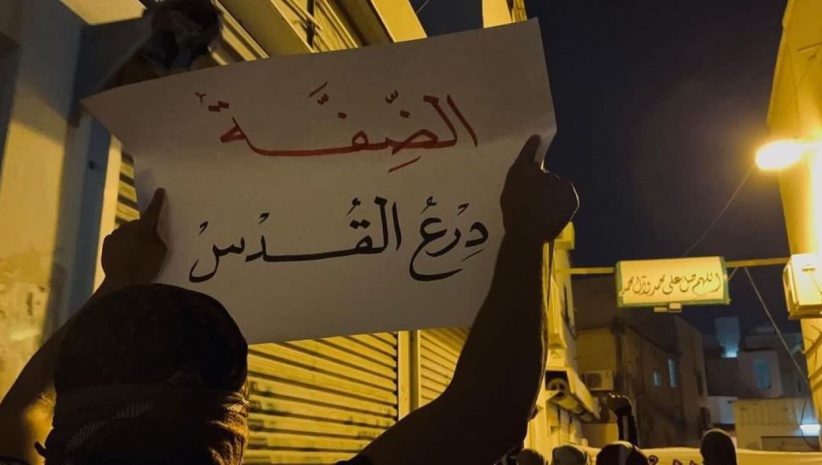 الضِّفَّةُ
دِرْعُ القُدْسْ
اللهم صل على محمد وآل محمد